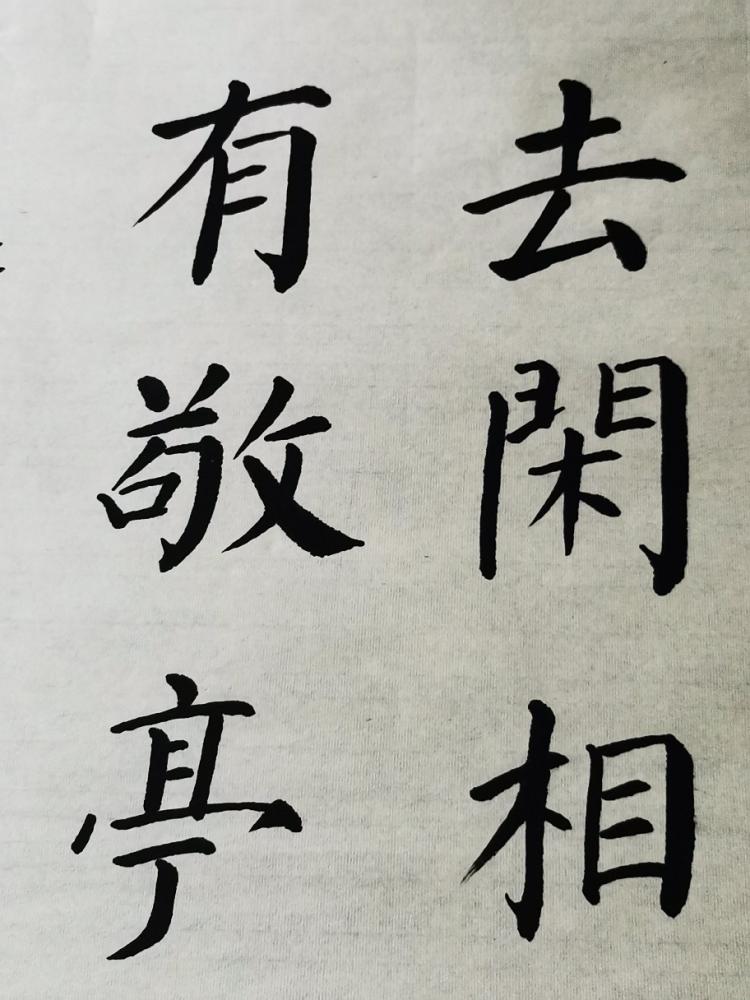 去閑相
有敬亭